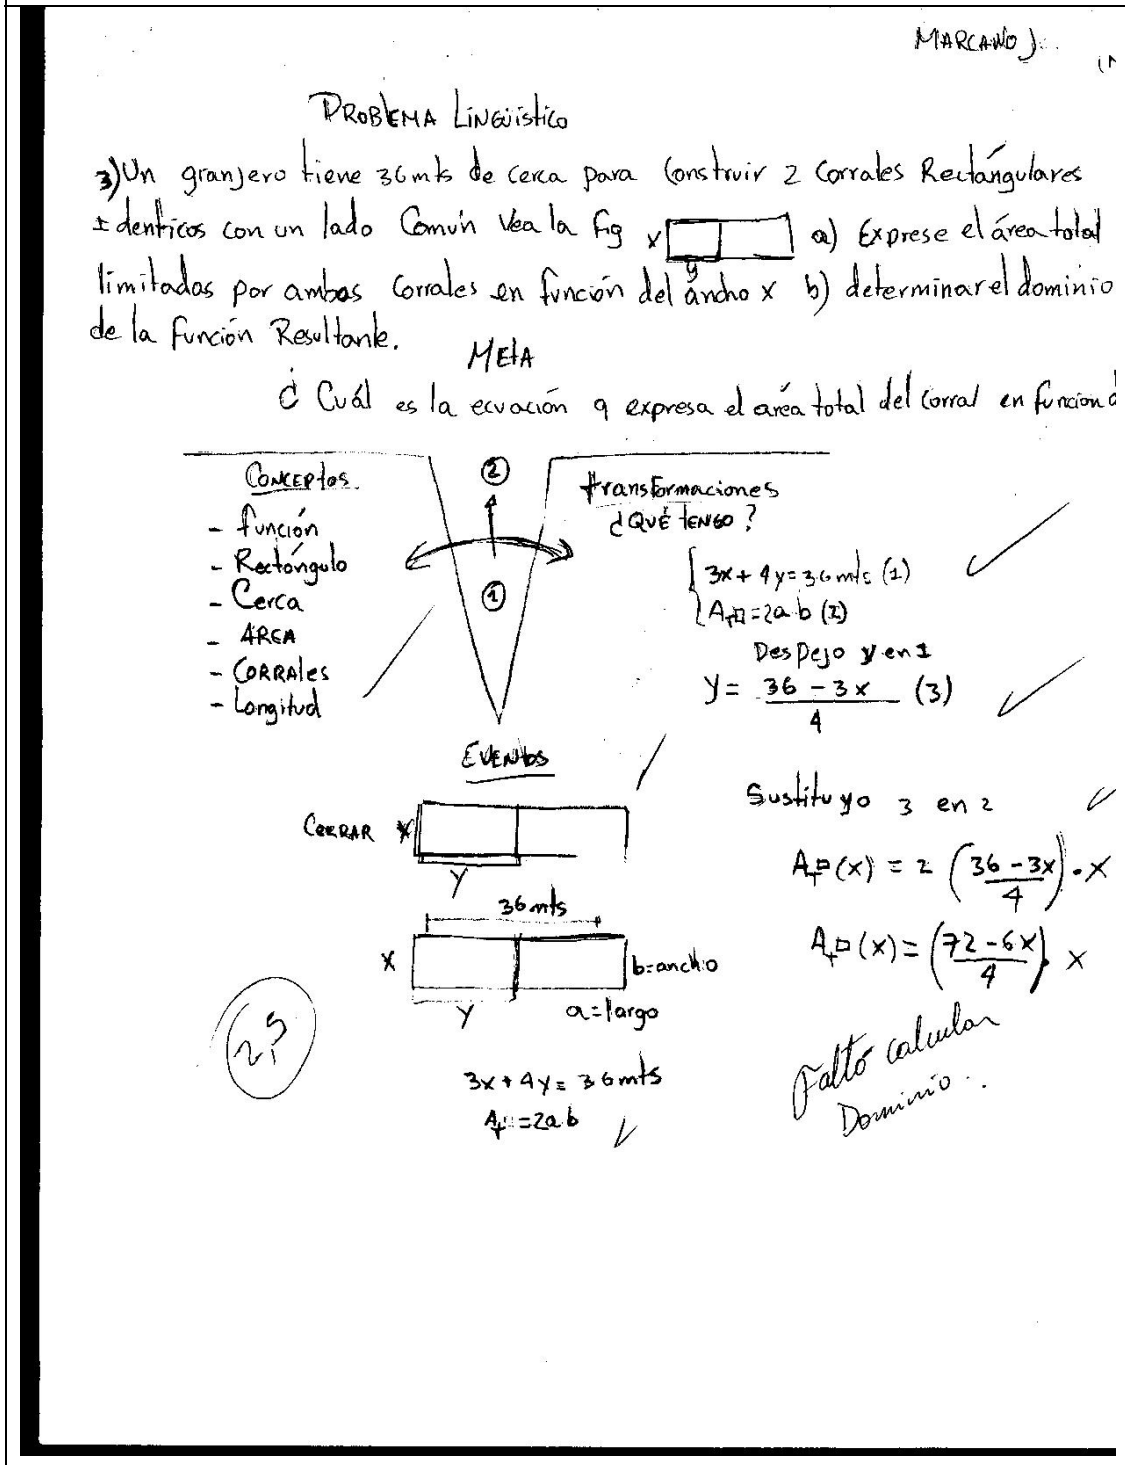 MARCANO J.
PROBLEMA LINGÜístico
3) Un granjero tiene 36 mts de cerca para construir 2 Corrales Rectángulares
Identicos con un lado Común Vea la Fig x y a) Exprese el área total
limitados por ambos Corrales en función del áncho x b) determinar el dominio
de la función Resultante.
META
¿ Cuál es la ecuación q expresa el área total del corral en funcion d
CONCEPtos.
- función
- Rectángulo
- Cerca
- AREA
- CORRALes
- Longitud
②
①
transformaciones
¿QUÉ tENGO?
3x + 4y = 36 mts (1)
AT▭ = 2a.b (2)
Despejo y en 1
y = 36 - 3x / 4 (3)
Sustituyo 3 en 2
AT▭(x) = 2 (36 - 3x / 4) . x
AT▭(x) = (72 - 6x / 4) . x
EVENtos
CERRAR x
y
36 mts
x
b=ancho
y
a=largo
3x + 4y = 36 mts
AT = 2a.b
2,5
Faltó calcular
Dominio.